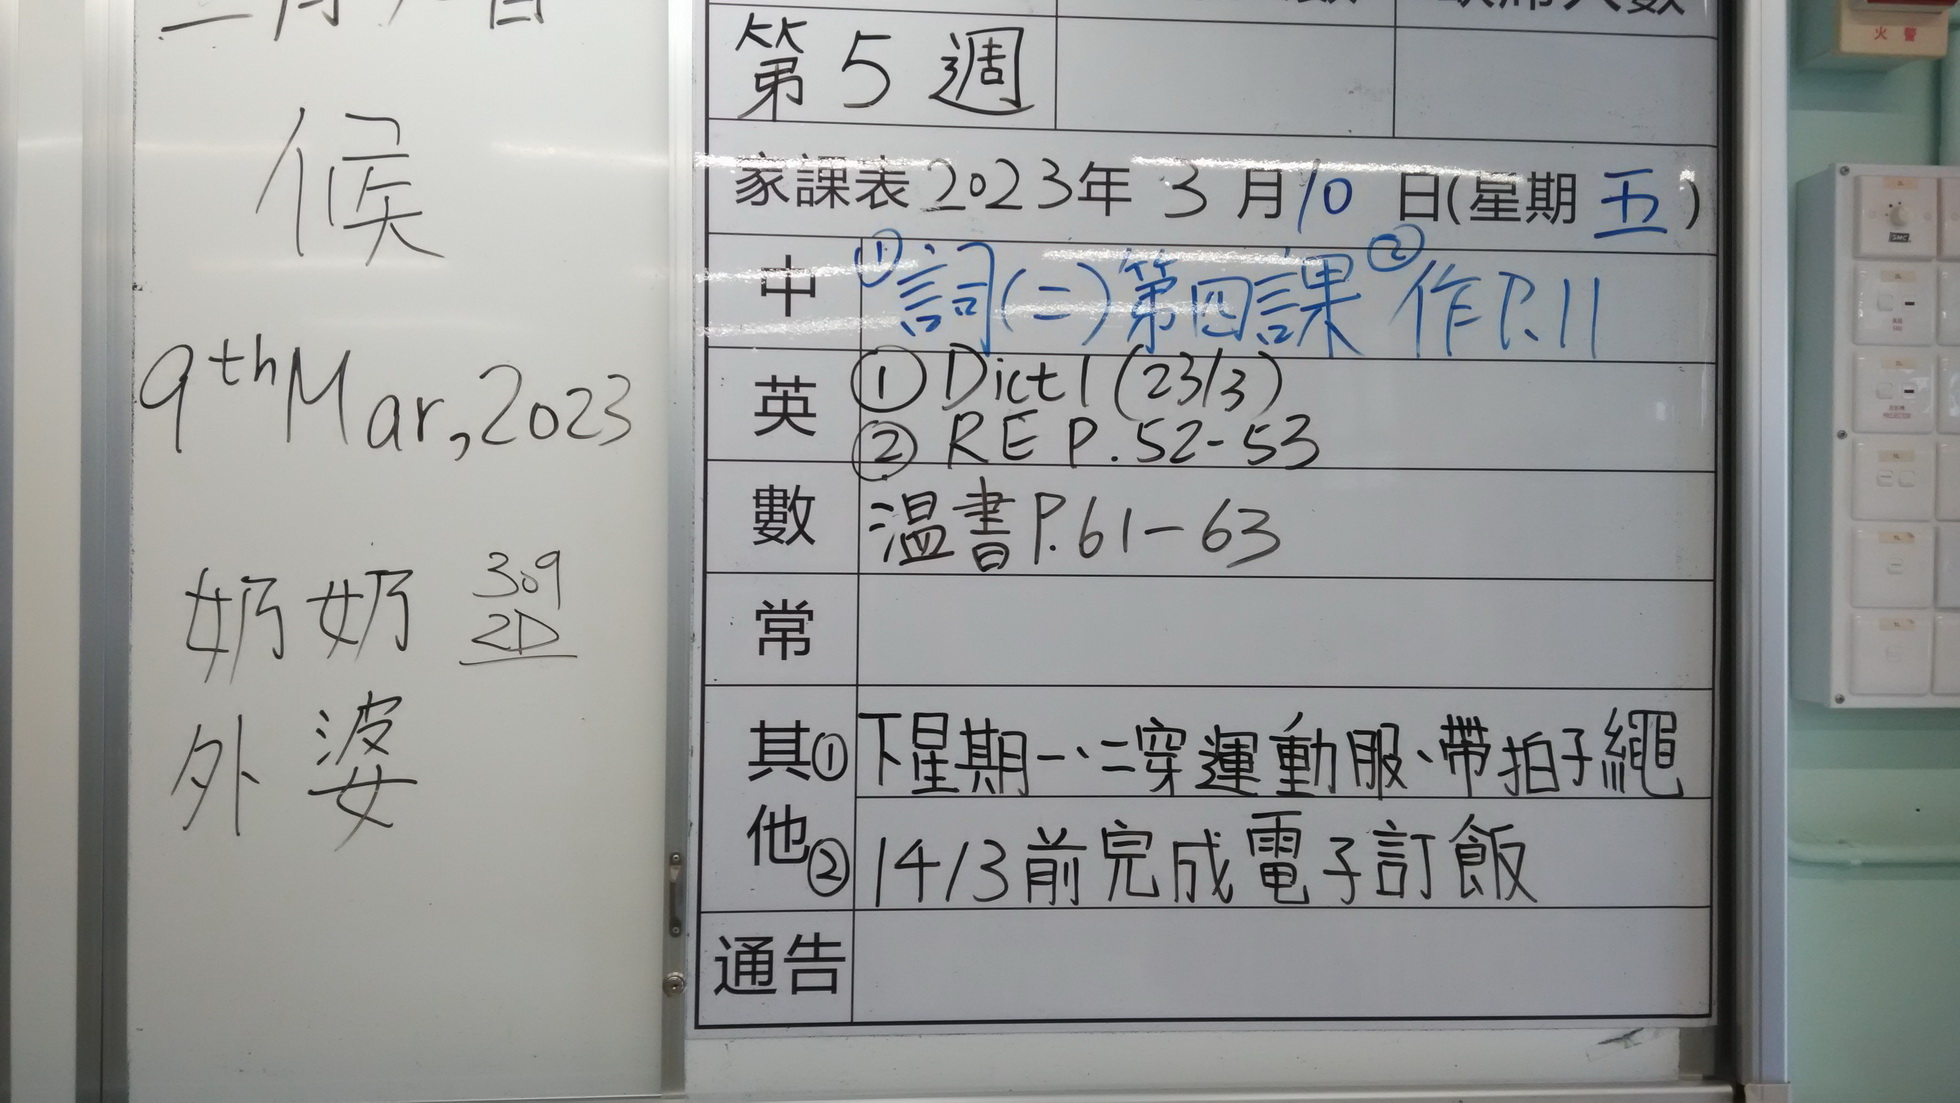 候
9th Mar, 2023
奶奶 309
2D
外婆
第5週
家課表 2023年 3月10日(星期五)
中 ①詞(二)第四課 ②作P.11
英 ① Dict 1 (23/3)
② RE P.52-53
數 温書P.61-63
常
其他 ①下星期一、二穿運動服、帶拍子繩
②14/3前完成電子訂飯
通告
火警